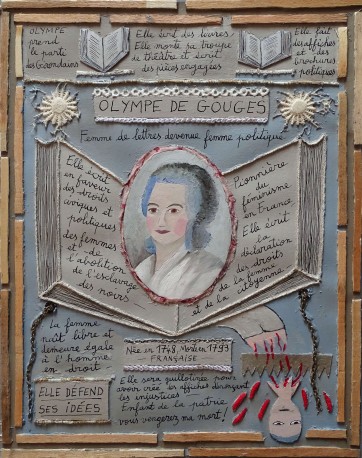 OLYMPE
prend
le parti
des Girondains
Elle écrit des livres.
Elle monte sa troupe
de théâtre et écrit
des pièces engagées
Elle fait
des affiches
et des
brochures
politiques
OLYMPE DE GOUGES
Femme de lettres devenue femme politique
Elle écrit
en faveur
des droits
civiques et
politiques
des femmes
et de
l'abolition
de l'esclavage
des noirs
Pionnière
du
féminisme
en France
Elle écrit
la
déclaration
des droits
de la femme
et de la citoyenne
La femme
naît libre et
demeure égale
à l'homme
en droit
Née en 1748, Morte en 1793
FRANÇAISE
ELLE DÉFEND
SES IDÉES
Elle sera guillotinée pour
avoir créé les affiches dénonçant
les injustices
Enfant de la patrie
vous vengerez ma mort!